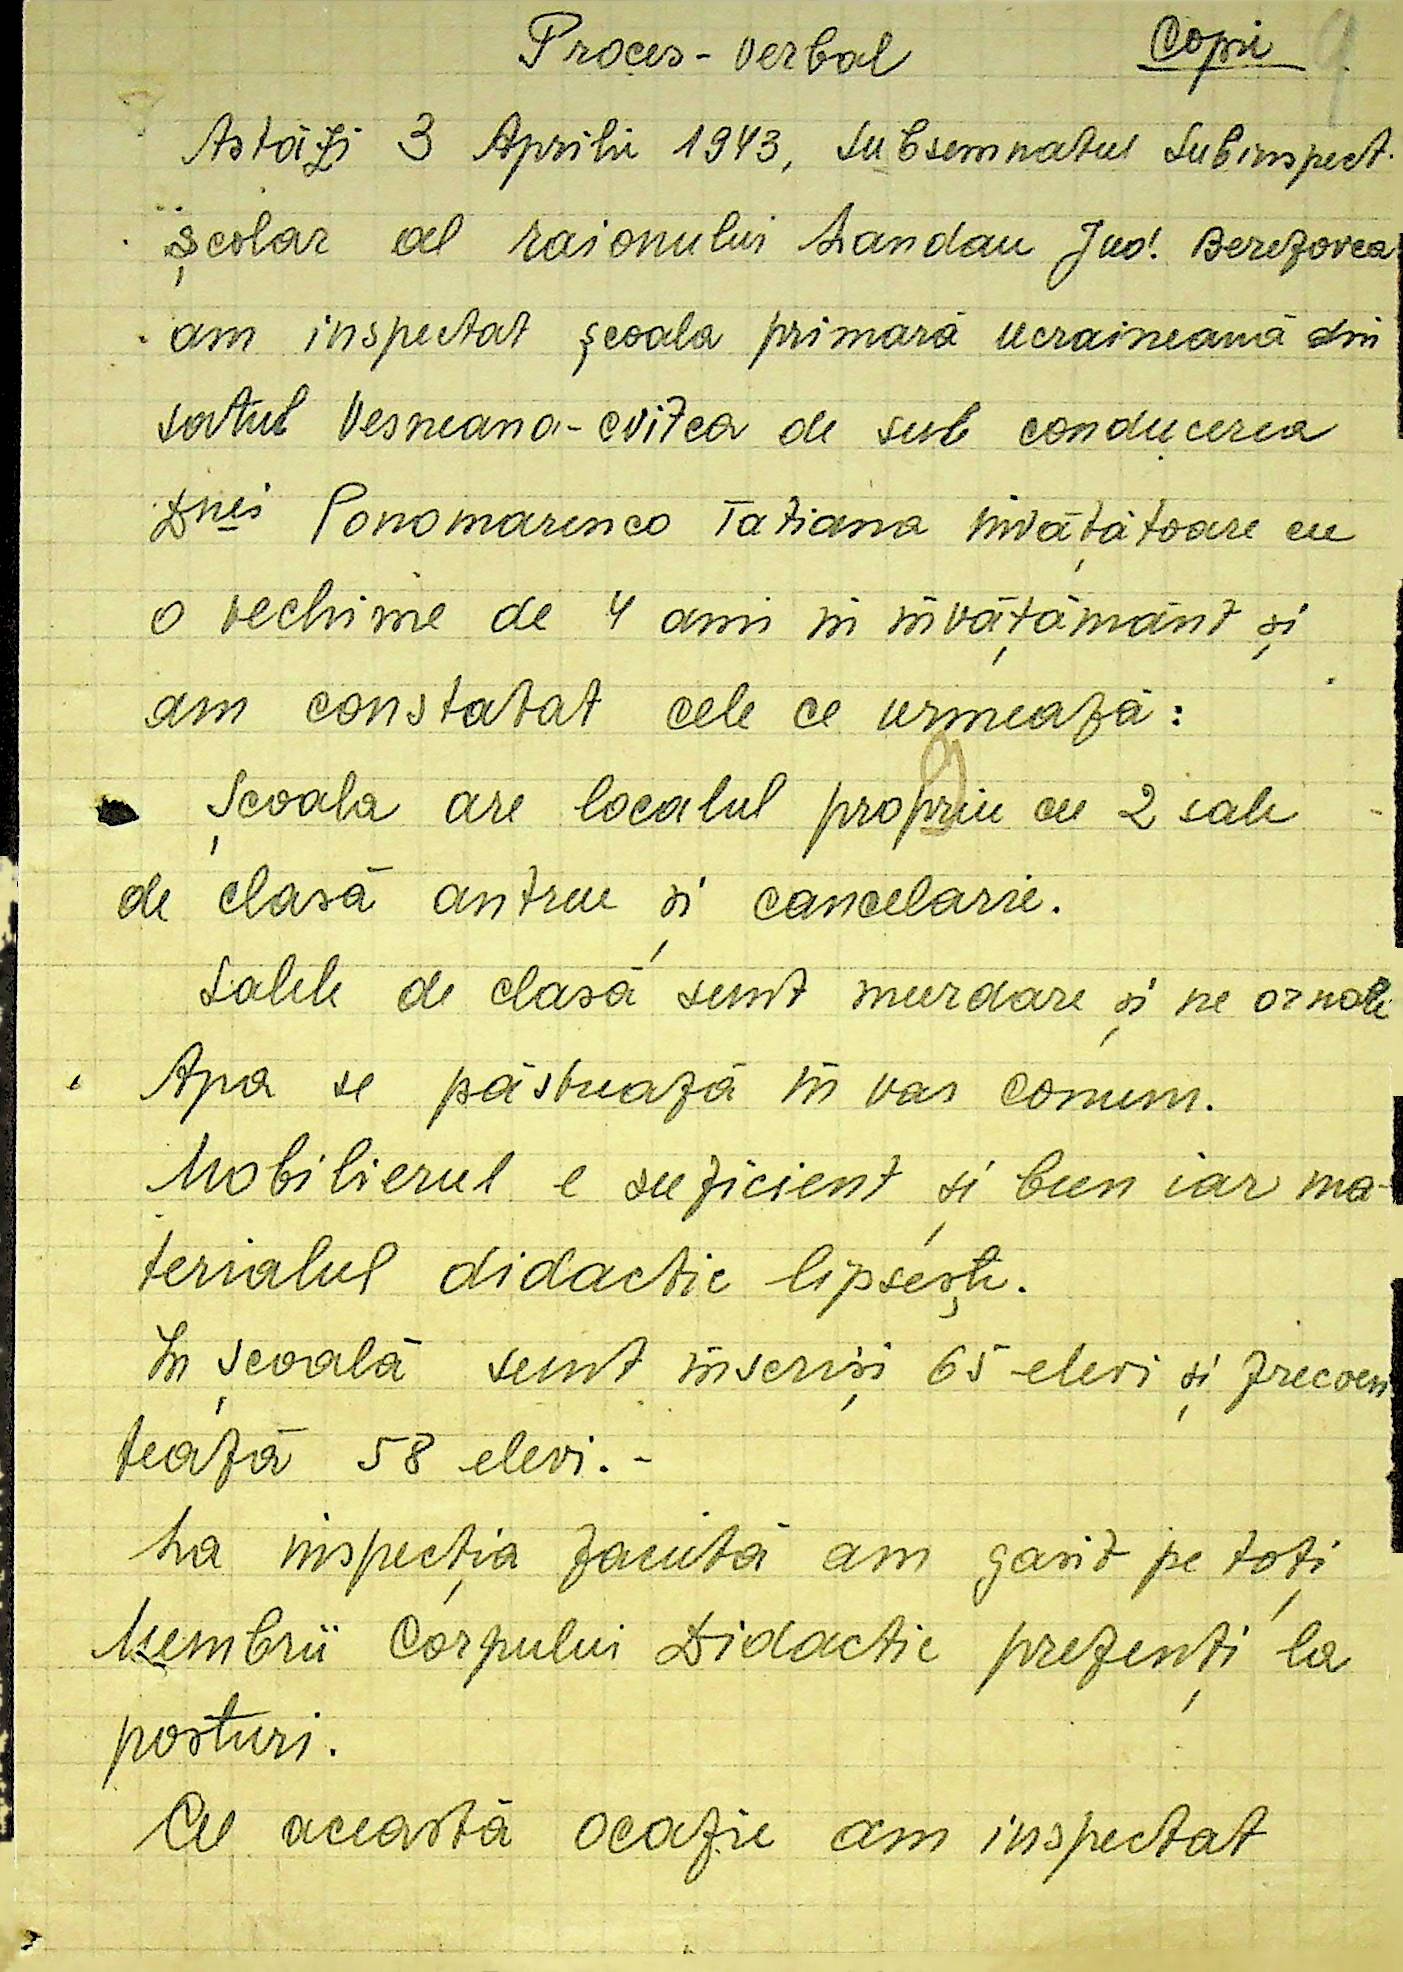 Proces-verbal Copie 9
Astăzi 3 Aprilie 1943, subsemnatul subinspect.
școlar al raionului Landau Jud. Berezovca
am inspectat școala primară ucraineană din
satul Vesneana-cvitca de sub conducerea
Dnei Ponomarenco Tatiana învățătoare cu
o vechime de 4 ani în învățământ și
am constatat cele ce urmează:
Școala are localul propriu cu 2 sale
de clasă antreu și cancelarie.
Salele de clasă sunt murdare și ne ornate
Apa se păstrează în vas comun.
Mobilierul e suficient și bun iar ma-
terialul didactic lipsește.
In școală sunt înscriși 65 elevi și frecven
tează 58 elevi.-
La inspecția facută am gasit pe toți
Membrii Corpului Didactic prezenți la
posturi.
Cu această ocazie am inspectat